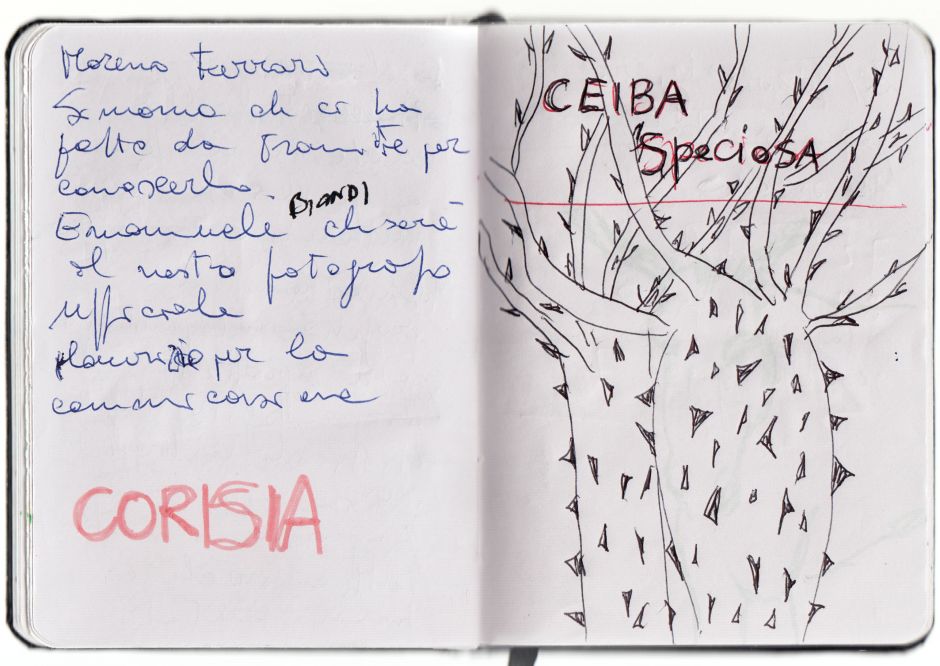 Moreno Ferrari
Simona ch ci ha
fatto da tramite per
conoscerlo.
BIANDI
Emanuele ch sarà
il nostro fotografo
ufficiale
Maurizio per la
comunicazione
CORISIA
CEIBA
SpeciosA